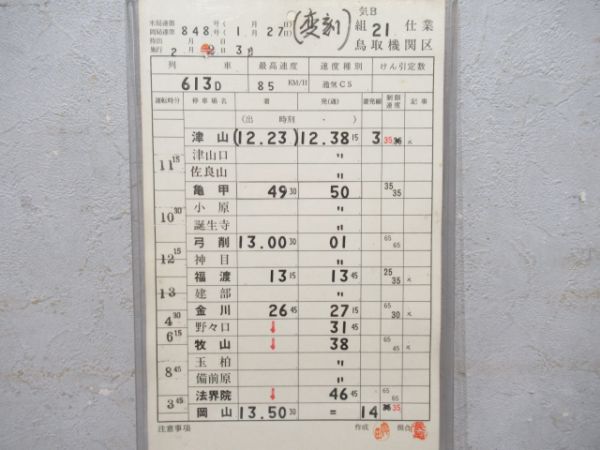 米局達第 号( 月 日)
岡局達第 848号( 1. 月 27日) (変刻) 気B 組 21 仕業
時間 月 日
施行 2. 月 3日 鳥取機関区
列 車 最高速度 速度種別 けん引定数
613D 85 KM/H 通気C5
運転時分 停車場名 着 発(通) 着発線 制限速度 記事
(出 時刻 ・ )
津山 (12.23) 12.38 15 3 35
津山口 〃
11 15 佐良山 〃
亀甲 49 30 50 35 35
小原 〃
10 30 誕生寺 〃
弓削 13.00 30 01 65 65
12 15 神目 〃
福渡 13 15 13 45 25 35 ×
13 建部 〃
金川 26 45 27 15 65 30 ×
4 30 野々口 ↓ 31 45
6 15 牧山 ↓ 38 65 45 ×
玉柏 〃
8 45 備前原 〃
法界院 ↓ 46 45 65 65
3 45 岡山 13.50 30 = 14 35
注意事項 作成 照合